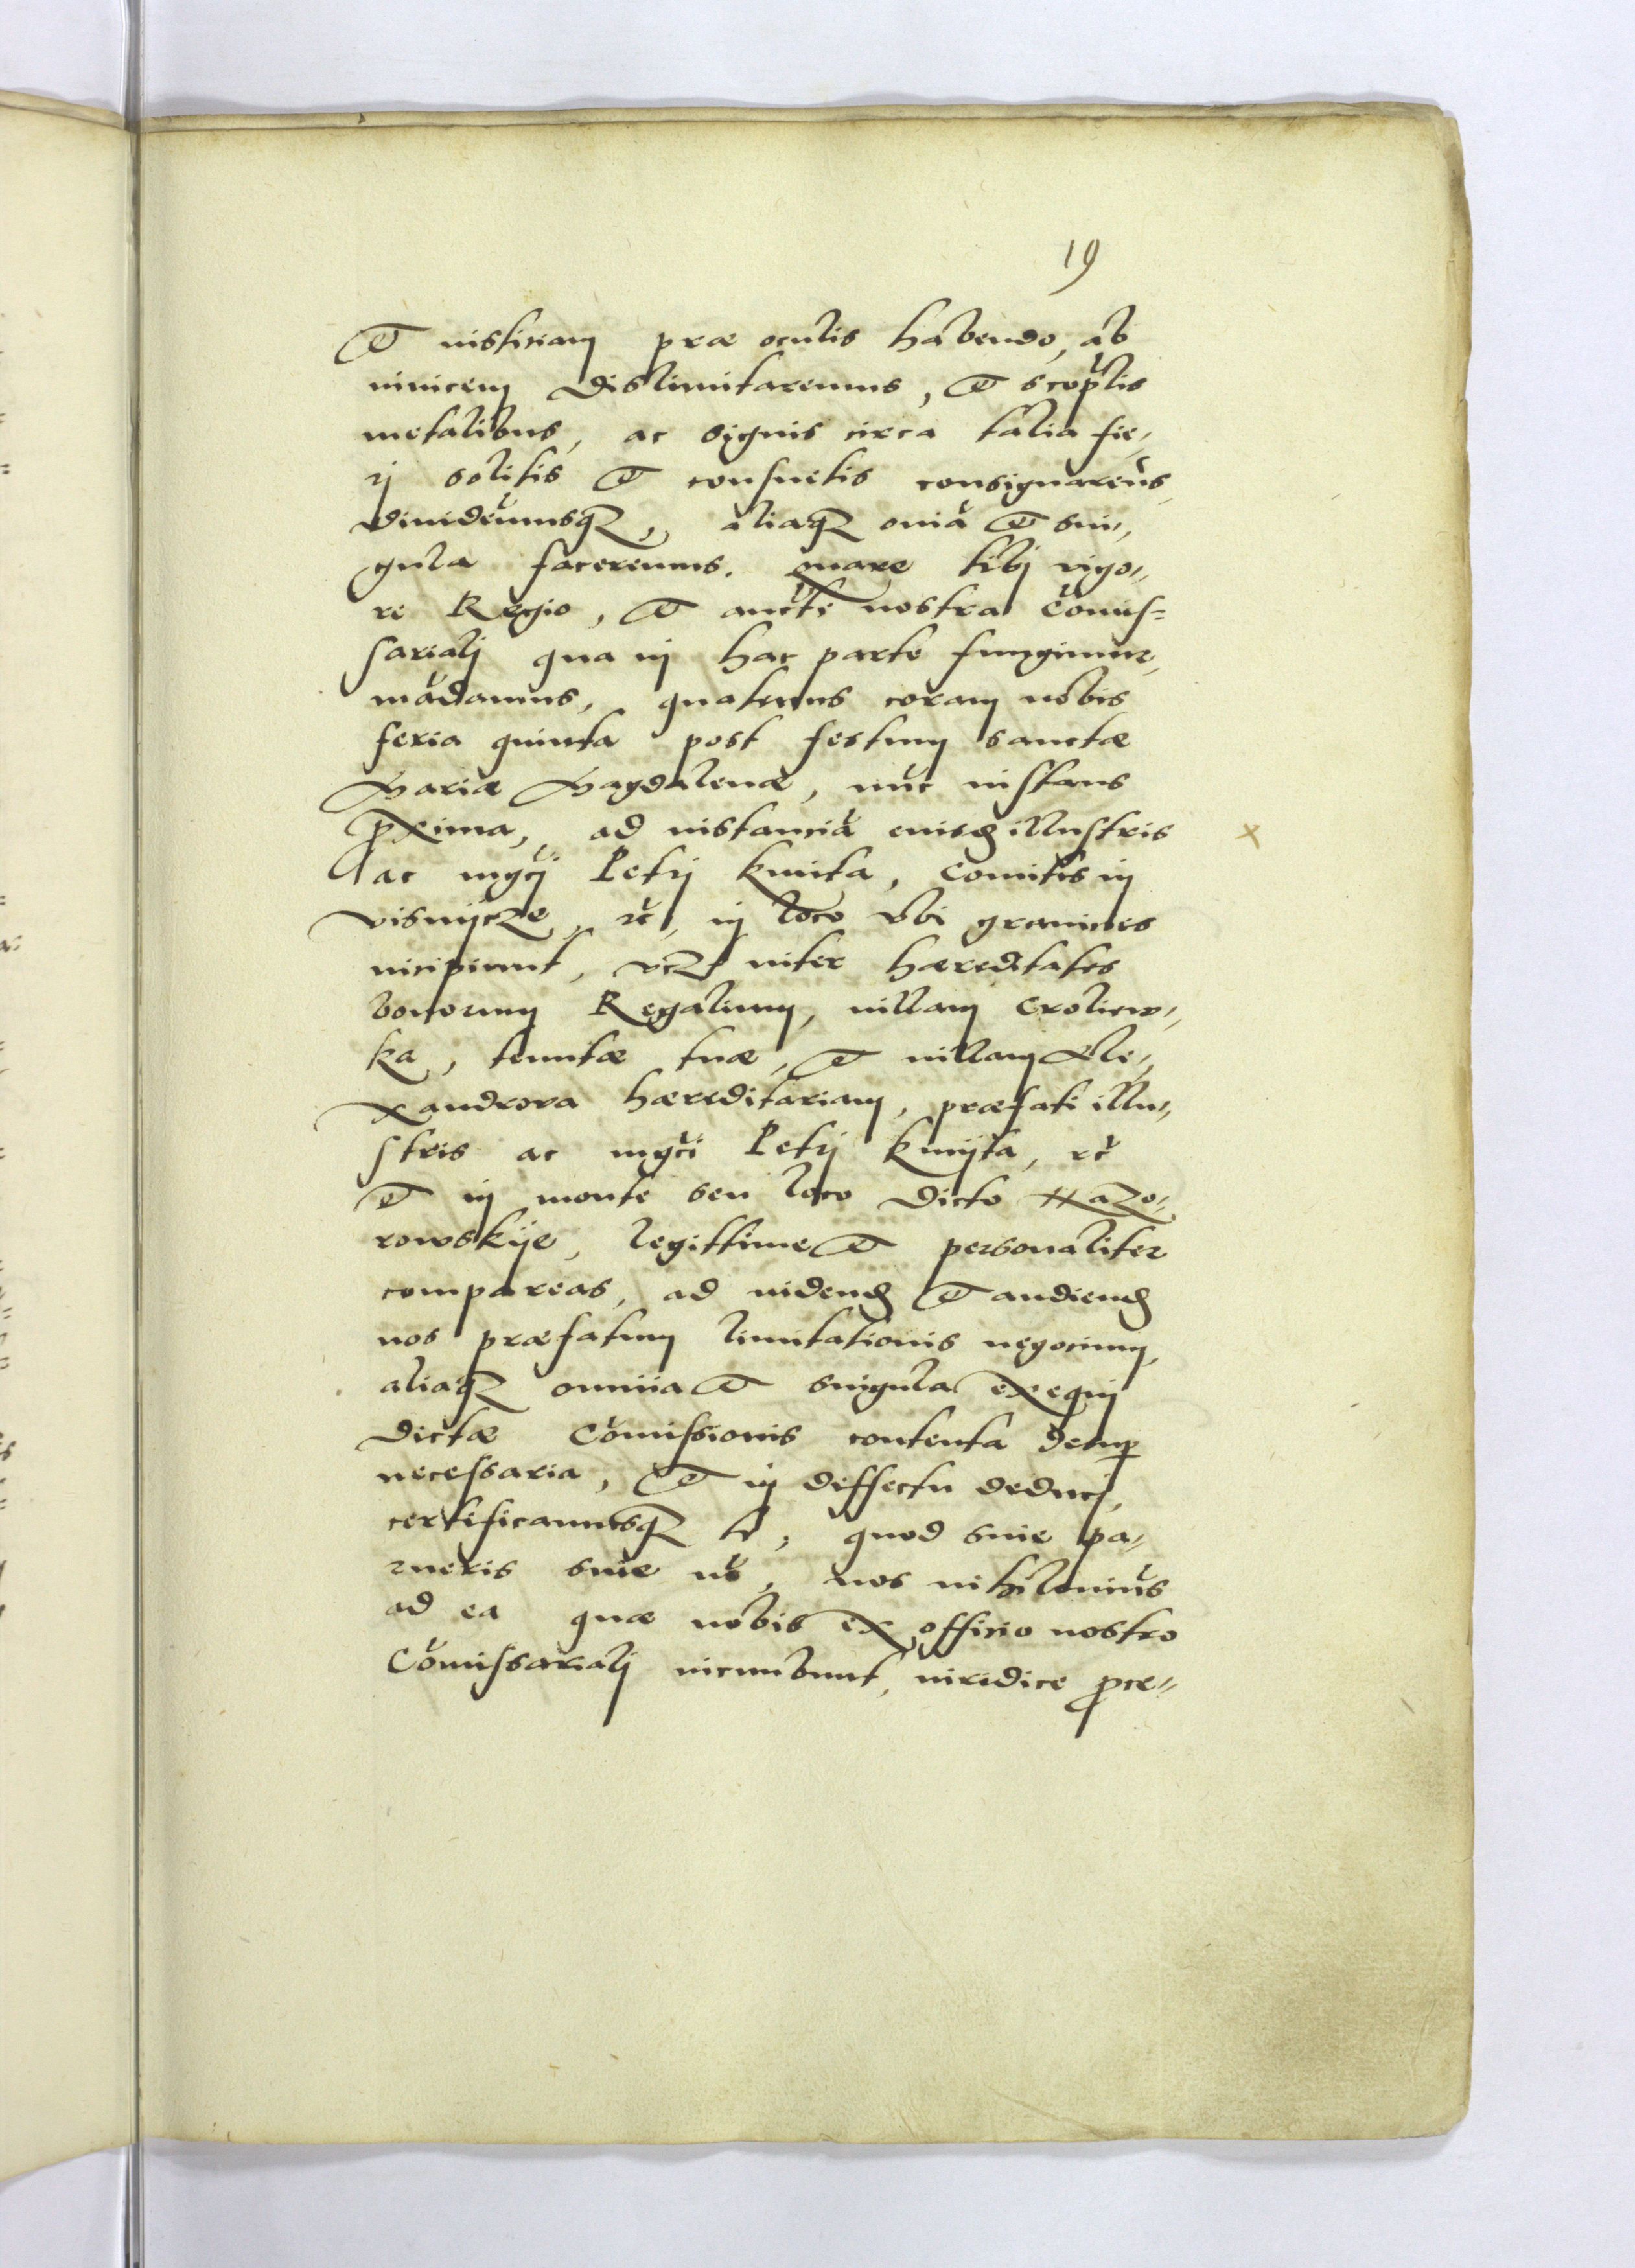 19
et iusticiam præ oculis habendo, ab
inuicem dislimitaremus, et scoplis
metalibus, ac signis circa talia fie,
rj solitis et consuetis consignareũs
diuideremusq, aliaq oniã et sin,
gula faceremus. quare tibj vigo,,
re Regio, et aucti nostra Cõmis=
sarialj qua in hac parte fungimur,
mãdamus, quatenus coram nobis
feria quinta post festum sanctæ
Mariæ Magdalenæ, nũc instans
proxima, ad instanciã eiusd illustris
ac mgcj Petrj Kmita, Comitis in
Visnijcze, ec, in loco Vbi granicies
incipiunt, vcz inter hæreditates
bonorum Regalium, villam Croliew,,
ka, tenutæ tuæ, et villam Ale,
xandrova hæreditariam, præfati illu,,
stris ac mgci Petrj Kmijta, ec
et in monte seu loco dicto
rowskije, legittime et personaliter
compareas, ad uidend et audiend
nos præfatum limitationis negocium,
aliaq omnia et singula exequj
dictæ Cõmissionis contenta
necessaria, et in deffectu deducj,
certificamusq te, quod siue pa,
rueris siue nõ, nos nihilominũs
ad ea quæ nobis ex officio nostro
Cõmissarialj incumbunt, iuridice proce,,